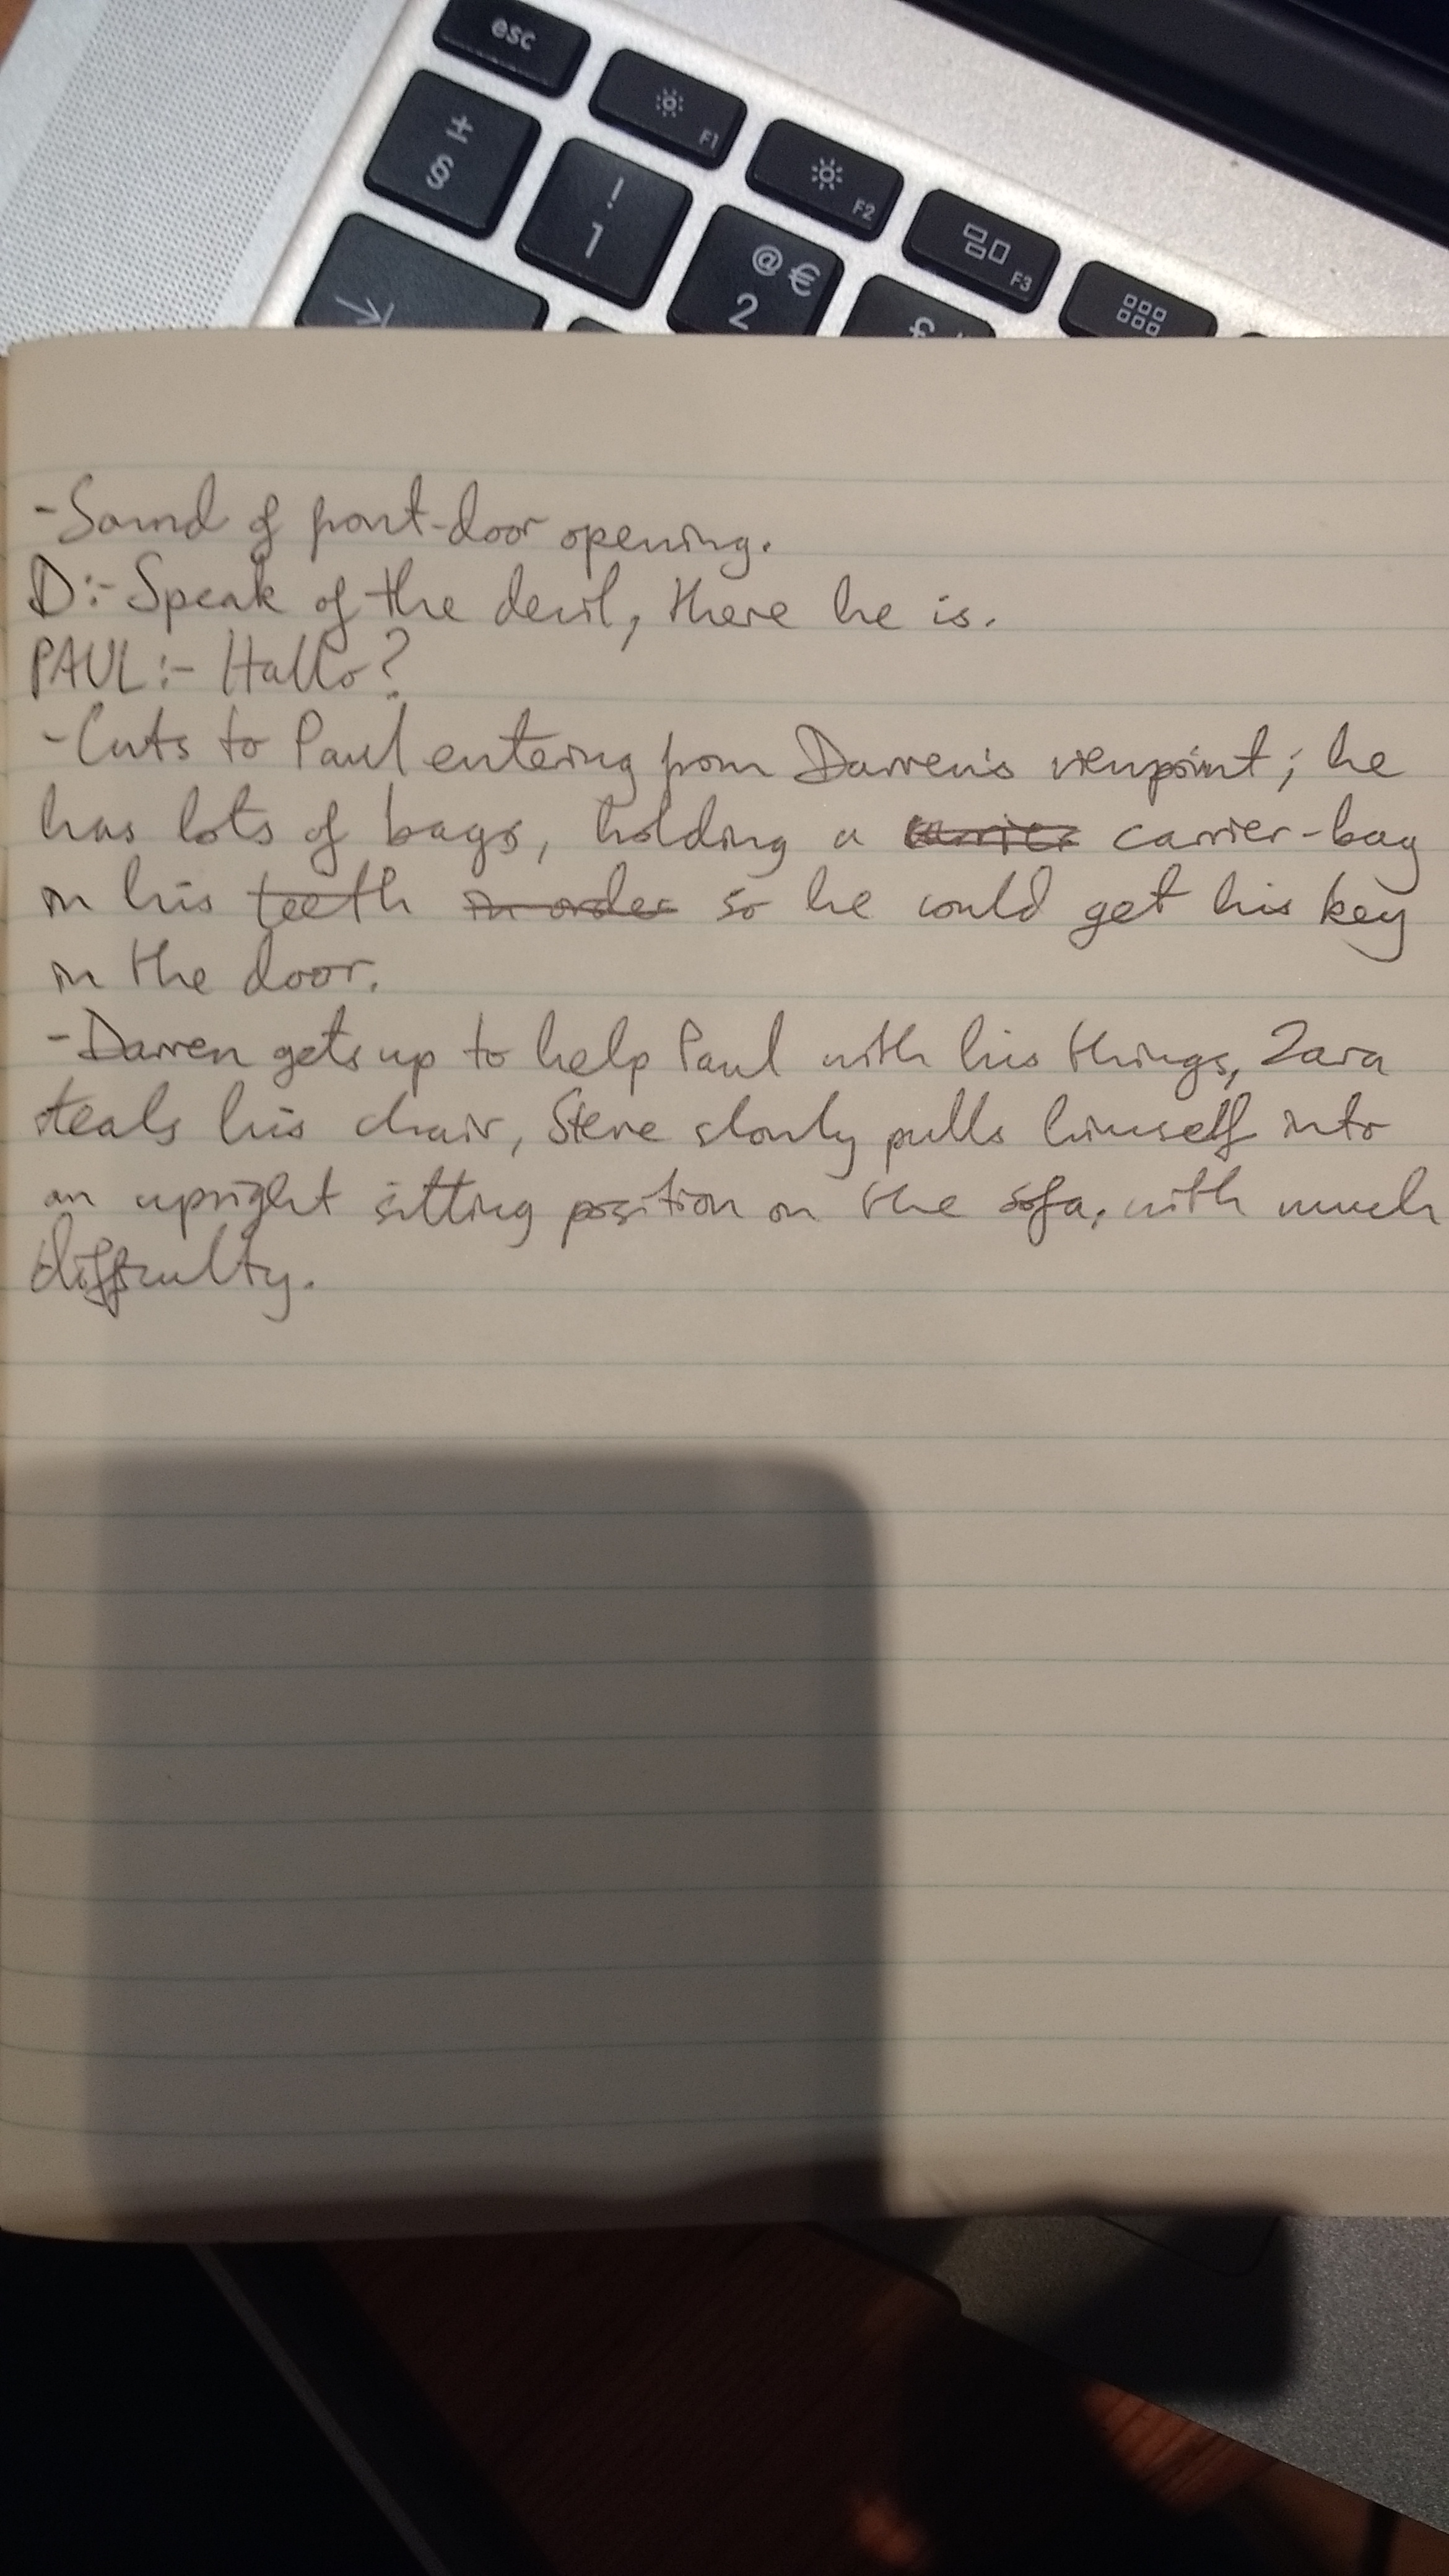 esc
F1
F2
F3
±
§
!
1
@ €
2
£
-Sound of front-door opening.
D:- Speak of the devil, there he is.
PAUL:- Hallo?
-Cuts to Paul entering from Darren's viewpoint; he
has lots of bags, holding a carrier carrier-bag
in his teeth in order so he could get his key
in the door.
-Darren gets up to help Paul with his things, Zara
steals his chair, Steve slowly pulls himself into
an upright sitting position on the sofa, with much
difficulty.